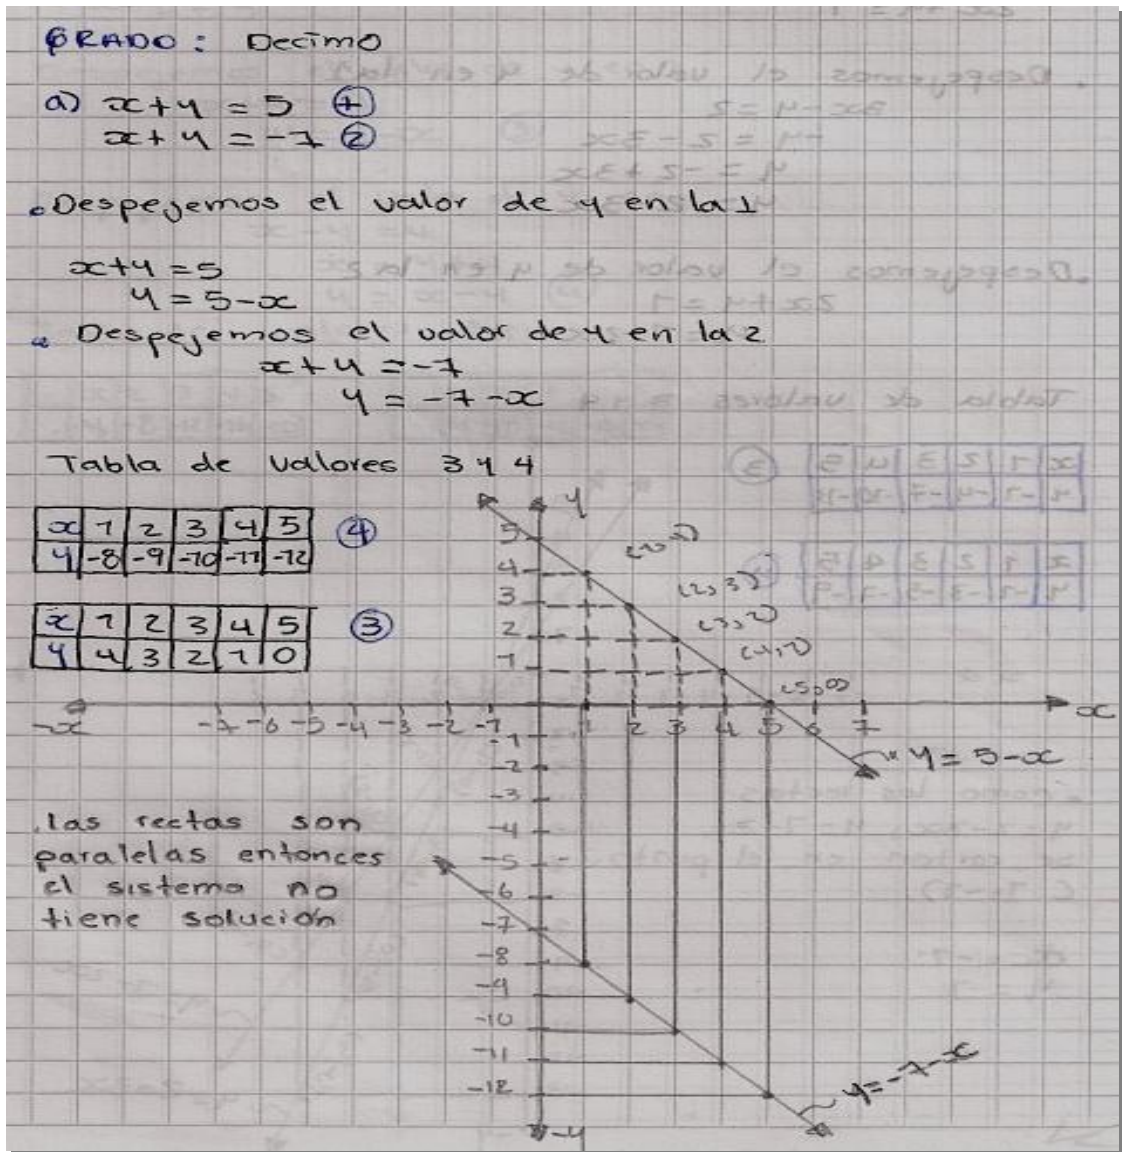 GRADO: Decimo
a) x+y = 5 ①
x+y = -7 ②
• Despejemos el valor de y en la 1
x+y = 5
y = 5-x
• Despejemos el valor de y en la 2
x+y = -7
y = -7-x
Tabla de valores 3 y 4
x 1 2 3 4 5 ④
y -8 -9 -10 -11 -12
x 1 2 3 4 5 ③
y 4 3 2 1 0
y
5
4
3
2
1
(2,3)
(3,2)
(4,1)
(5,0)
-x -7 -6 -5 -4 -3 -2 -1 1 2 3 4 5 6 7 x
-1
-2
-3
-4
-5
-6
-7
-8
-9
-10
-11
-12
-y
y = 5-x
y=-7-x
.las rectas son
paralelas entonces
el sistema no
tiene solución